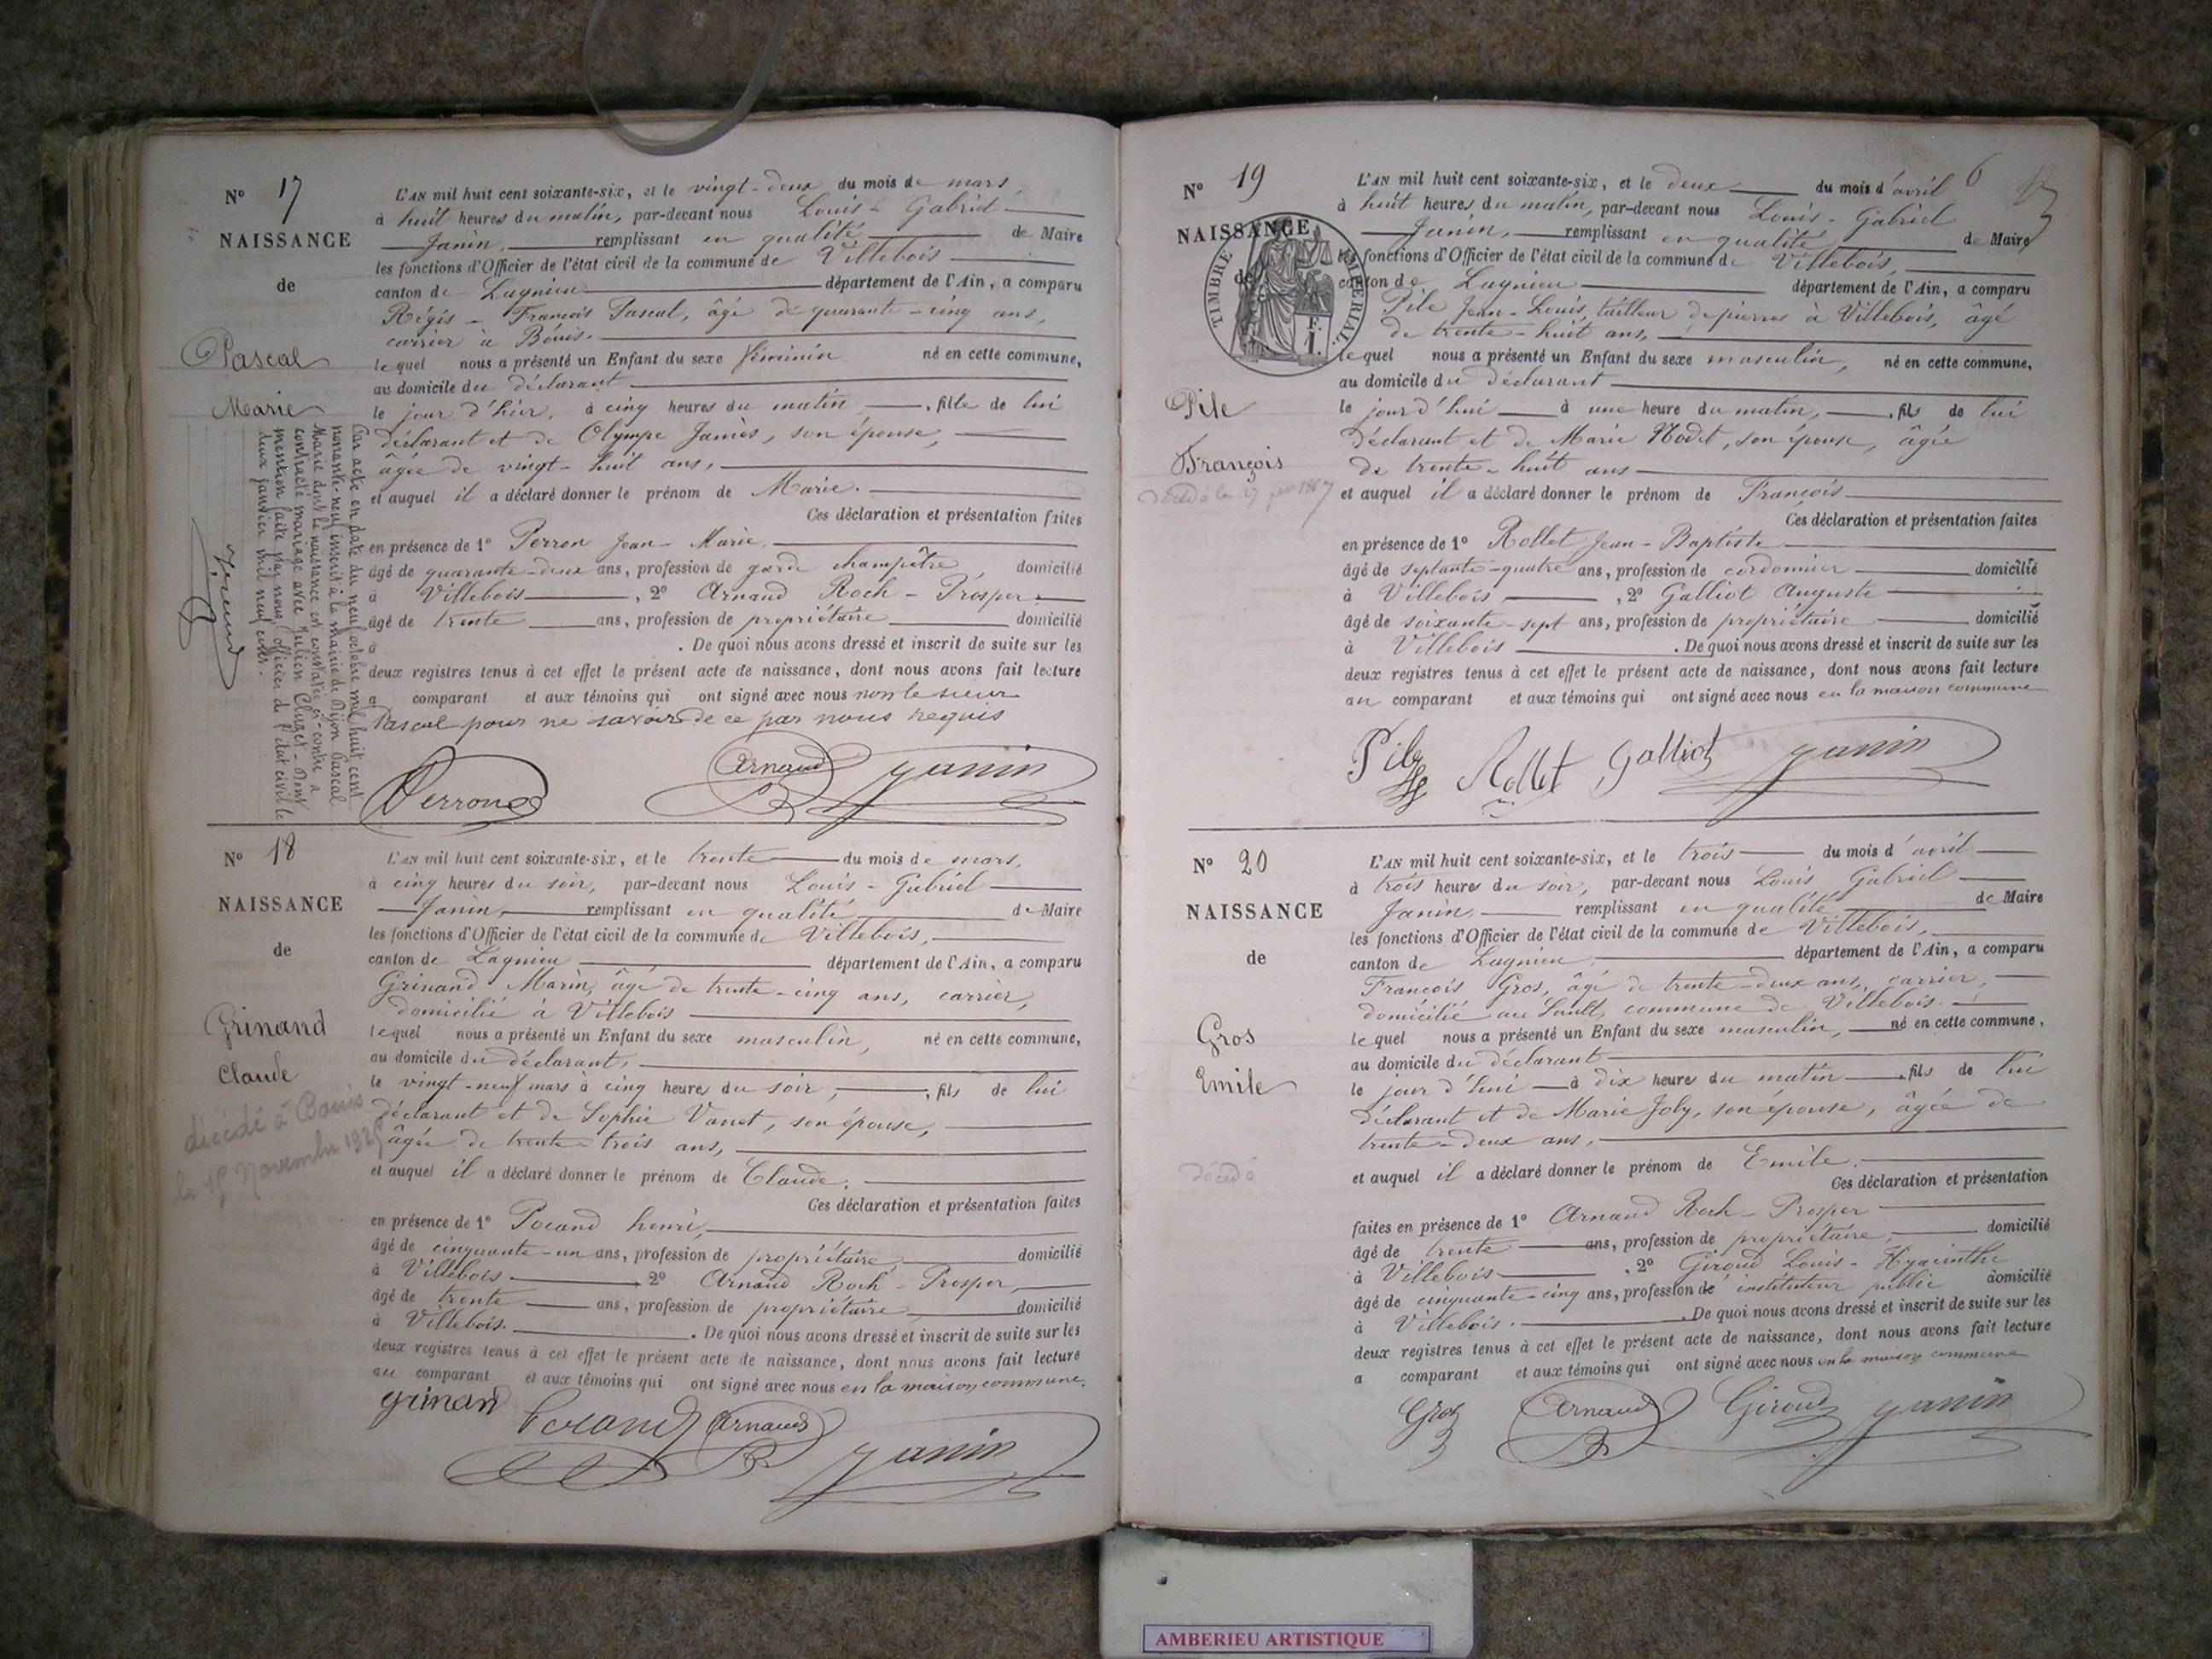 N° 17
NAISSANCE
de
Pascal
Marie
Par acte en date du neuf octobre mil huit cent
nonante-neuf inscrit à la mairie de Dijon Pascal
Marie dont la naissance est constatée ci-contre a
contracté mariage avec Julien Cluget - Dont
mention faite par nous, officier de l'état civil le
deux janvier mil neuf cent.
L'AN mil huit cent soixante-six, et le vingt-deux du mois de mars,
à huit heures du matin, par-devant nous Louis-Gabriel
Janin, remplissant en qualité de Maire
les fonctions d'Officier de l'état civil de la commune de Villebois
canton de Lagnieu département de l'Ain, a comparu
Régis-François Pascal, âgé de quarante-cinq ans,
carrier à Bouis.
lequel nous a présenté un Enfant du sexe féminin né en cette commune,
au domicile du déclarant
le jour d'hier, à cinq heures du matin, fille de lui
déclarant et de Olympe Janiès, son épouse,
âgée de vingt-huit ans,
et auquel il a déclaré donner le prénom de Marie.
Ces déclaration et présentation faites
en présence de 1° Perron Jean-Marie.
âgé de quarante-deux ans, profession de garde champêtre, domicilié
à Villebois, 2° Arnaud Roch-Prosper,
âgé de trente ans, profession de propriétaire domicilié
à . De quoi nous avons dressé et inscrit de suite sur les
deux registres tenus à cet effet le présent acte de naissance, dont nous avons fait lecture
a comparant et aux témoins qui ont signé avec nous non le sieur
Pascal pour ne savoir de ce par nous requis
Perron Arnaud Janin
N° 18
NAISSANCE
de
Grinand
Claude
décédé à Bouis
le Novembre
L'AN mil huit cent soixante-six, et le trente du mois de mars,
à cinq heures du soir, par-devant nous Louis-Gabriel
Janin, remplissant en qualité de Maire
les fonctions d'Officier de l'état civil de la commune de Villebois,
canton de Lagnieu département de l'Ain, a comparu
Grinand Marin, âgé de trente-cinq ans, carrier,
domicilié à Villebois
lequel nous a présenté un Enfant du sexe masculin, né en cette commune,
au domicile du déclarant,
le vingt-neuf mars à cinq heures du soir, fils de lui
déclarant et de Sophie Vanet, son épouse,
âgée de trente-trois ans,
et auquel il a déclaré donner le prénom de Claude.
Ces déclaration et présentation faites
en présence de 1° Pocand henri,
âgé de cinquante-un ans, profession de propriétaire, domicilié
à Villebois 2° Arnaud Roch-Prosper,
âgé de trente ans, profession de propriétaire, domicilié
à Villebois. . De quoi nous avons dressé et inscrit de suite sur les
deux registres tenus à cet effet le présent acte de naissance, dont nous avons fait lecture
au comparant et aux témoins qui ont signé avec nous en la maison commune.
grinand Pocand Arnaud Janin
6
N° 19
NAISSANCE
de
TIMBRE IMPERIAL
Pile
François
décédé le 27 1867
L'AN mil huit cent soixante-six, et le deux du mois d'avril
à huit heures du matin, par-devant nous Louis-Gabriel
Janin, remplissant en qualité de Maire
les fonctions d'Officier de l'état civil de la commune de Villebois,
canton de Lagnieu département de l'Ain, a comparu
Pile Jean-Louis, tailleur de pierres à Villebois, âgé
de trente-huit ans,
lequel nous a présenté un Enfant du sexe masculin, né en cette commune,
au domicile du déclarant
le jour d'hui à une heure du matin, fils de lui
déclarant et de Marie Nodet, son épouse, âgée
de trente-huit ans
et auquel il a déclaré donner le prénom de François
Ces déclaration et présentation faites
en présence de 1° Rollet Jean-Baptiste
âgé de septante-quatre ans, profession de cordonnier domicilié
à Villebois, 2° Galliot Auguste
âgé de soixante-sept ans, profession de propriétaire domicilié
à Villebois . De quoi nous avons dressé et inscrit de suite sur les
deux registres tenus à cet effet le présent acte de naissance, dont nous avons fait lecture
au comparant et aux témoins qui ont signé avec nous en la maison commune
Pile Rollet Galliot Janin
N° 20
NAISSANCE
de
Gros
Emile
décédé
L'AN mil huit cent soixante-six, et le trois du mois d'avril
à trois heures du soir, par-devant nous Louis Gabriel
Janin, remplissant en qualité de Maire
les fonctions d'Officier de l'état civil de la commune de Villebois,
canton de Lagnieu département de l'Ain, a comparu
François Gros, âgé de trente-deux ans, carrier,
domicilié au Sault, commune de Villebois.
lequel nous a présenté un Enfant du sexe masculin, né en cette commune,
au domicile du déclarant
le jour d'hui à dix heures du matin fils de lui
déclarant et de Marie Joly, son épouse, âgée de
trente-deux ans,
et auquel il a déclaré donner le prénom de Emile.
Ces déclaration et présentation
faites en présence de 1° Arnaud Roch-Prosper
âgé de trente ans, profession de propriétaire, domicilié
à Villebois, 2° Giroud Louis-Hyacinthe
âgé de cinquante-cinq ans, profession de instituteur public domicilié
à Villebois. . De quoi nous avons dressé et inscrit de suite sur les
deux registres tenus à cet effet le présent acte de naissance, dont nous avons fait lecture
a comparant et aux témoins qui ont signé avec nous en la maison commune
Gros Arnaud Giroud Janin
AMBERIEU ARTISTIQUE